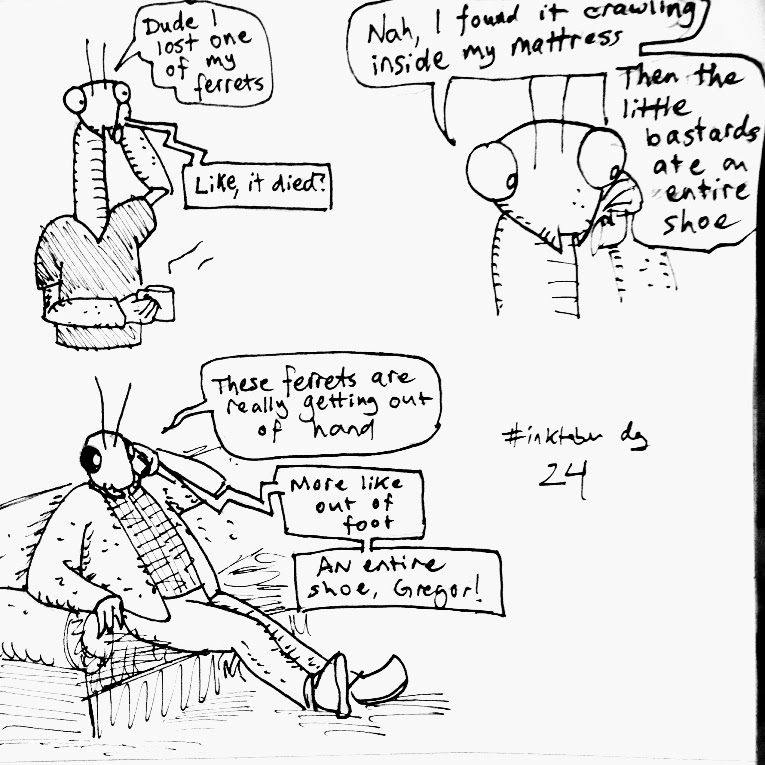 Dude I
lost one
of my
ferrets
Like, it died?
Nah, I found it crawling
inside my mattress
Then the
little
bastards
ate an
entire
shoe
These ferrets are
really getting out
of hand
More like
out of
foot
An entire
shoe, Gregor!
#inktober day
24